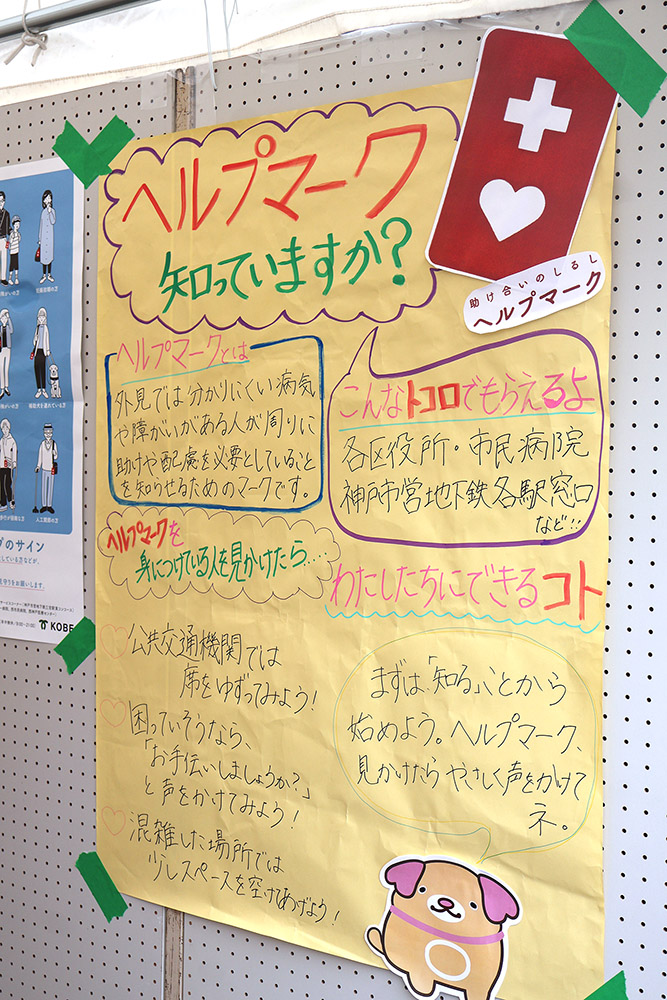 ヘルプマーク
知っていますか?
助け合いのしるし
ヘルプマーク
ヘルプマークとは
外見では分かりにくい病気
や障がいがある人が周りに
助けや配慮を必要としていること
を知らせるためのマークです。
こんなトコロでもらえるよ
各区役所・市民病院
神戸市営地下鉄各駅窓口
など!!
ヘルプマークを
身につけている人を見かけたら....
公共交通機関では
席をゆずってみよう!
困っていそうなら、
「お手伝いしましょうか?」
と声をかけてみよう!
混雑した場所では
少しスペースを空けてあげよう!
わたしたちにできるコト
まずは、「知る」ことから
始めよう。ヘルプマーク、
見かけたらやさしく声をかけて
ネ。
人工関節の方
プのサイン
KOBE